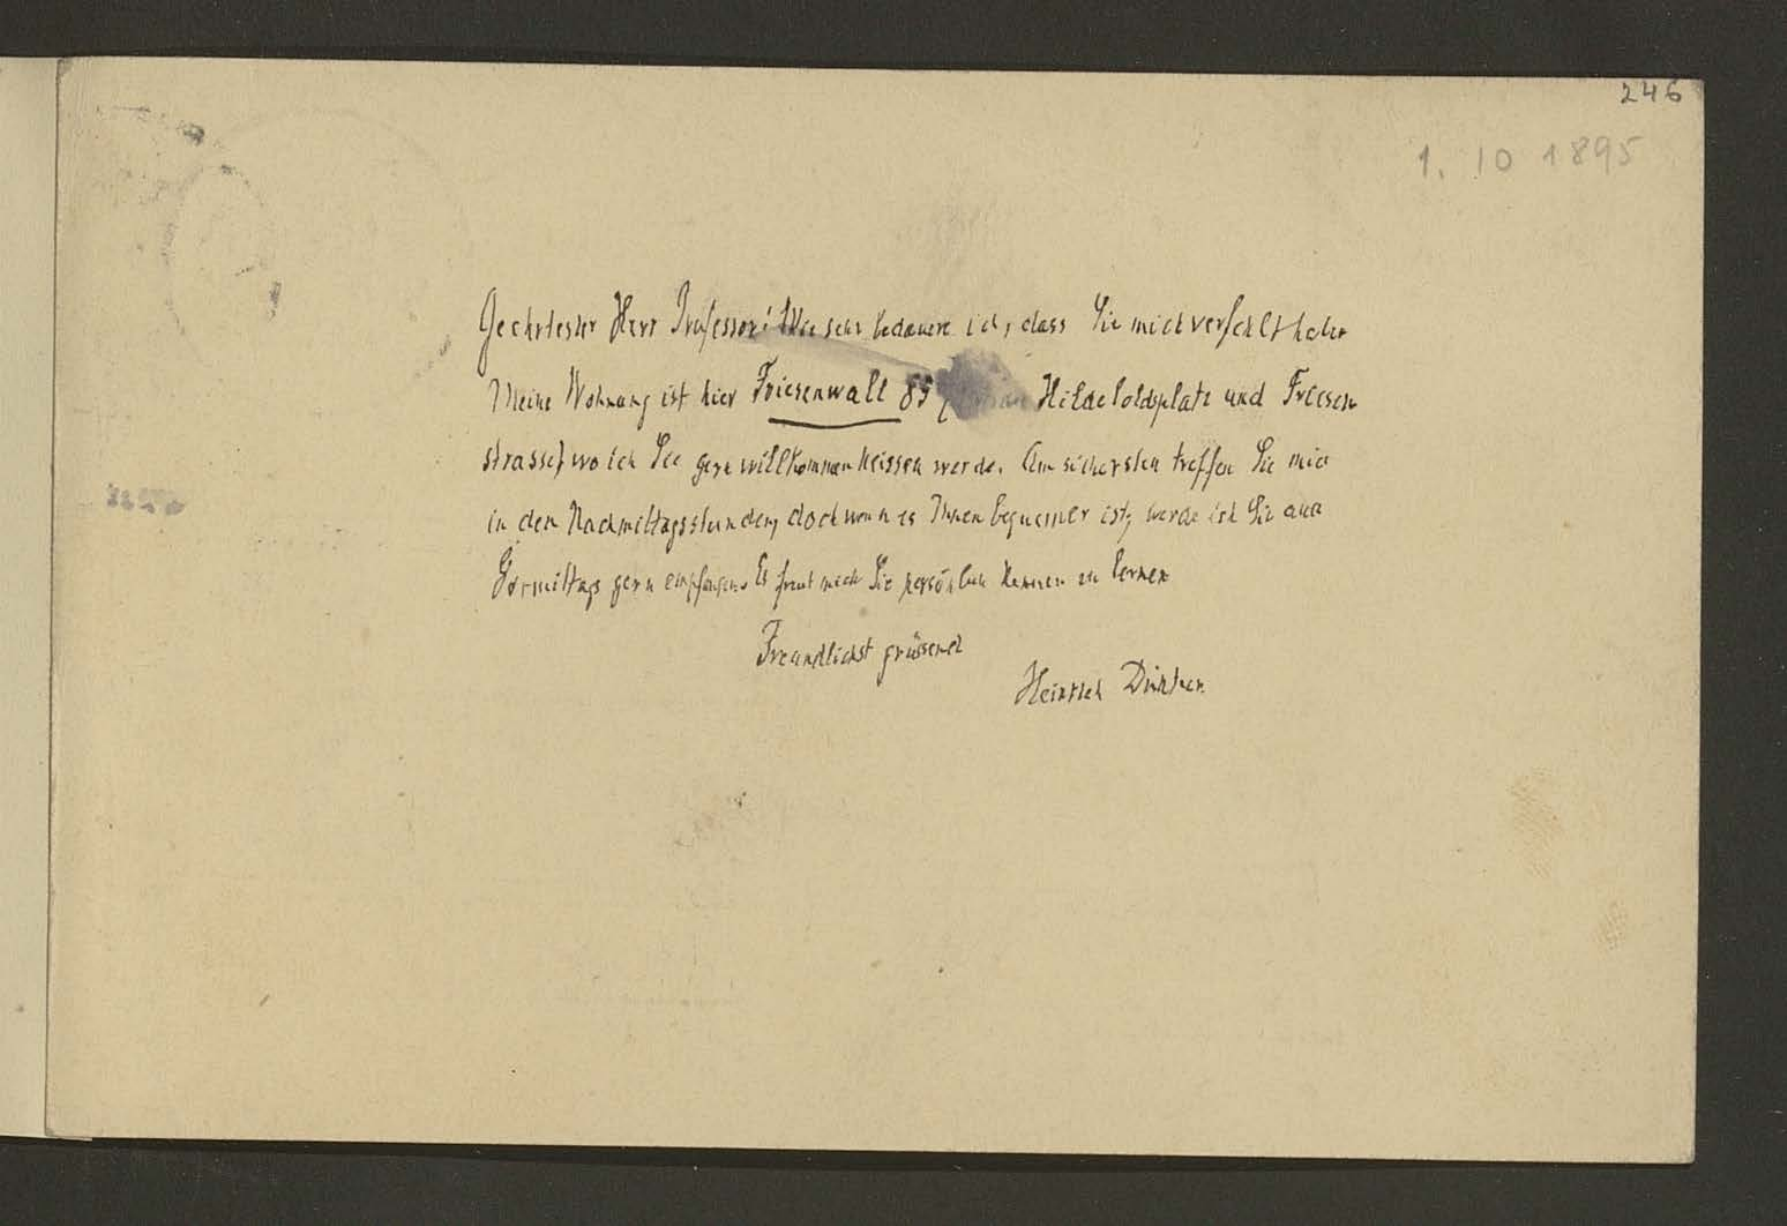 246
1. 10 1895
Geehrtester Herr Professor! Wie sehr bedauere ich, dass Sie mich verfehlt haben
Meine Wohnung ist hier Friesenwall 85 Hildeboldsplatz und Friesen
strasse) wo ich Sie gern willkommen heissen werde. Am sichersten treffen Sie mich
in den Nachmittagsstunden, doch wenn es Ihnen bequemer ist, werde ich Sie auch
Vormittags gern empfangen. Es freut mich Sie persönlich kennen zu lernen
Freundlichst grüssend
Heinrich Düntzer.